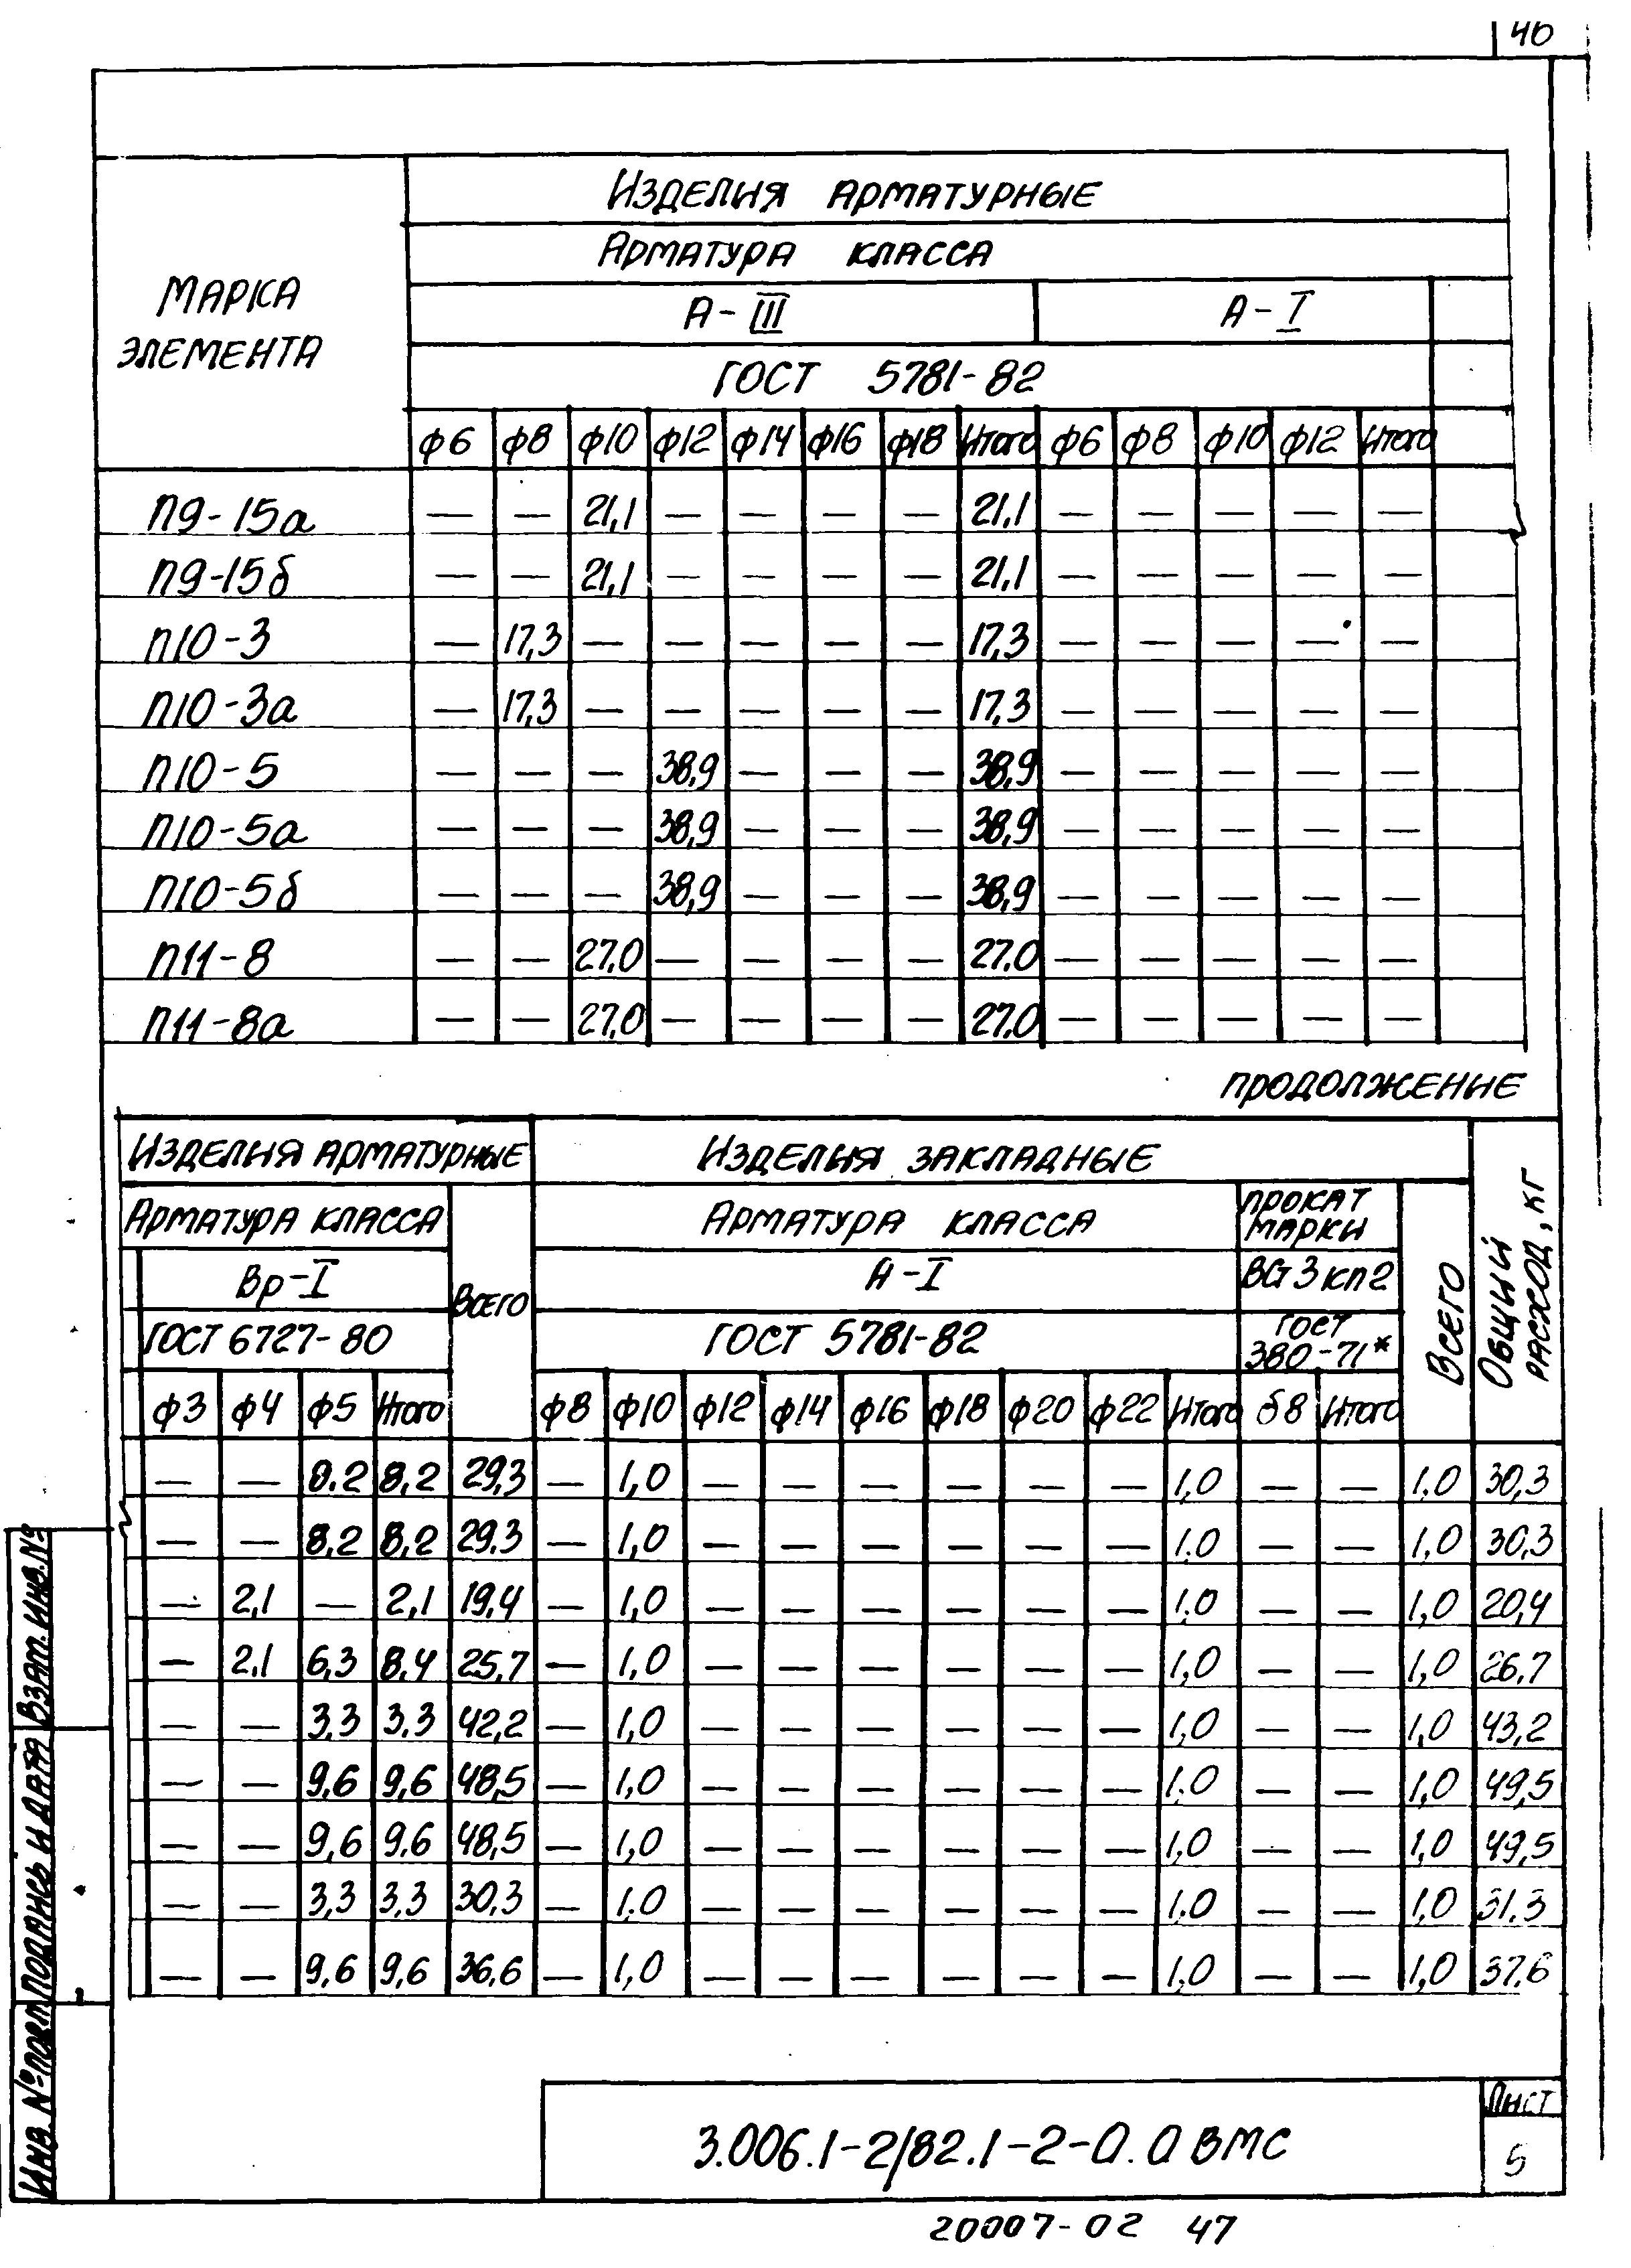 46
Изделия арматурные
Арматура класса
Марка элемента
А-III А-I
ГОСТ 5781-82
ф6 ф8 ф10 ф12 ф14 ф16 ф18 Итого ф6 ф8 ф10 ф12 Итого
П9-15а — — 21,1 — — — — 21,1 — — — — —
П9-15б — — 21,1 — — — — 21,1 — — — — —
П10-3 — 17,3 — — — — — 17,3 — — — — —
П10-3а — 17,3 — — — — — 17,3 — — — — —
П10-5 — — — 38,9 — — — 38,9 — — — — —
П10-5а — — — 38,9 — — — 38,9 — — — — —
П10-5б — — — 38,9 — — — 38,9 — — — — —
П11-8 — — 27,0 — — — — 27,0 — — — — —
П11-8а — — 27,0 — — — — 27,0 — — — — —
продолжение
Изделия арматурные Изделия закладные Общий расход, кг
Арматура класса Всего Арматура класса Прокат марки Всего
Вр-I А-I ВСт3кп2
ГОСТ 6727-80 ГОСТ 5781-82 ГОСТ 380-71*
ф3 ф4 ф5 Итого ф8 ф10 ф12 ф14 ф16 ф18 ф20 ф22 Итого б8 Итого
— — 8.2 8,2 29,3 — 1,0 — — — — — — 1,0 — — 1,0 30,3
— — 8,2 8,2 29.3 — 1,0 — — — — — — 1.0 — — 1,0 30,3
— 2,1 — 2,1 19,4 — 1,0 — — — — — — 1.0 — — 1,0 20,4
— 2,1 6,3 8,4 25,7 — 1,0 — — — — — — 1,0 — — 1,0 26,7
— — 3,3 3,3 42,2 — 1,0 — — — — — — 1,0 — — 1,0 43,2
— — 9,6 9,6 48,5 — 1,0 — — — — — — 1.0 — — 1,0 49,5
— — 9,6 9,6 48,5 — 1,0 — — — — — — 1,0 — — 1,0 49,5
— — 3,3 3,3 30,3 — 1.0 — — — — — — 1.0 — — 1,0 31.3
— — 9,6 9,6 36,6 — 1,0 — — — — — — 1,0 — — 1,0 37.6
Инв. № подл Подпись и дата Взам. инв. №
3.006.1-2/82.1-2-0.0 ВМС
Лист
5
20007-02 47